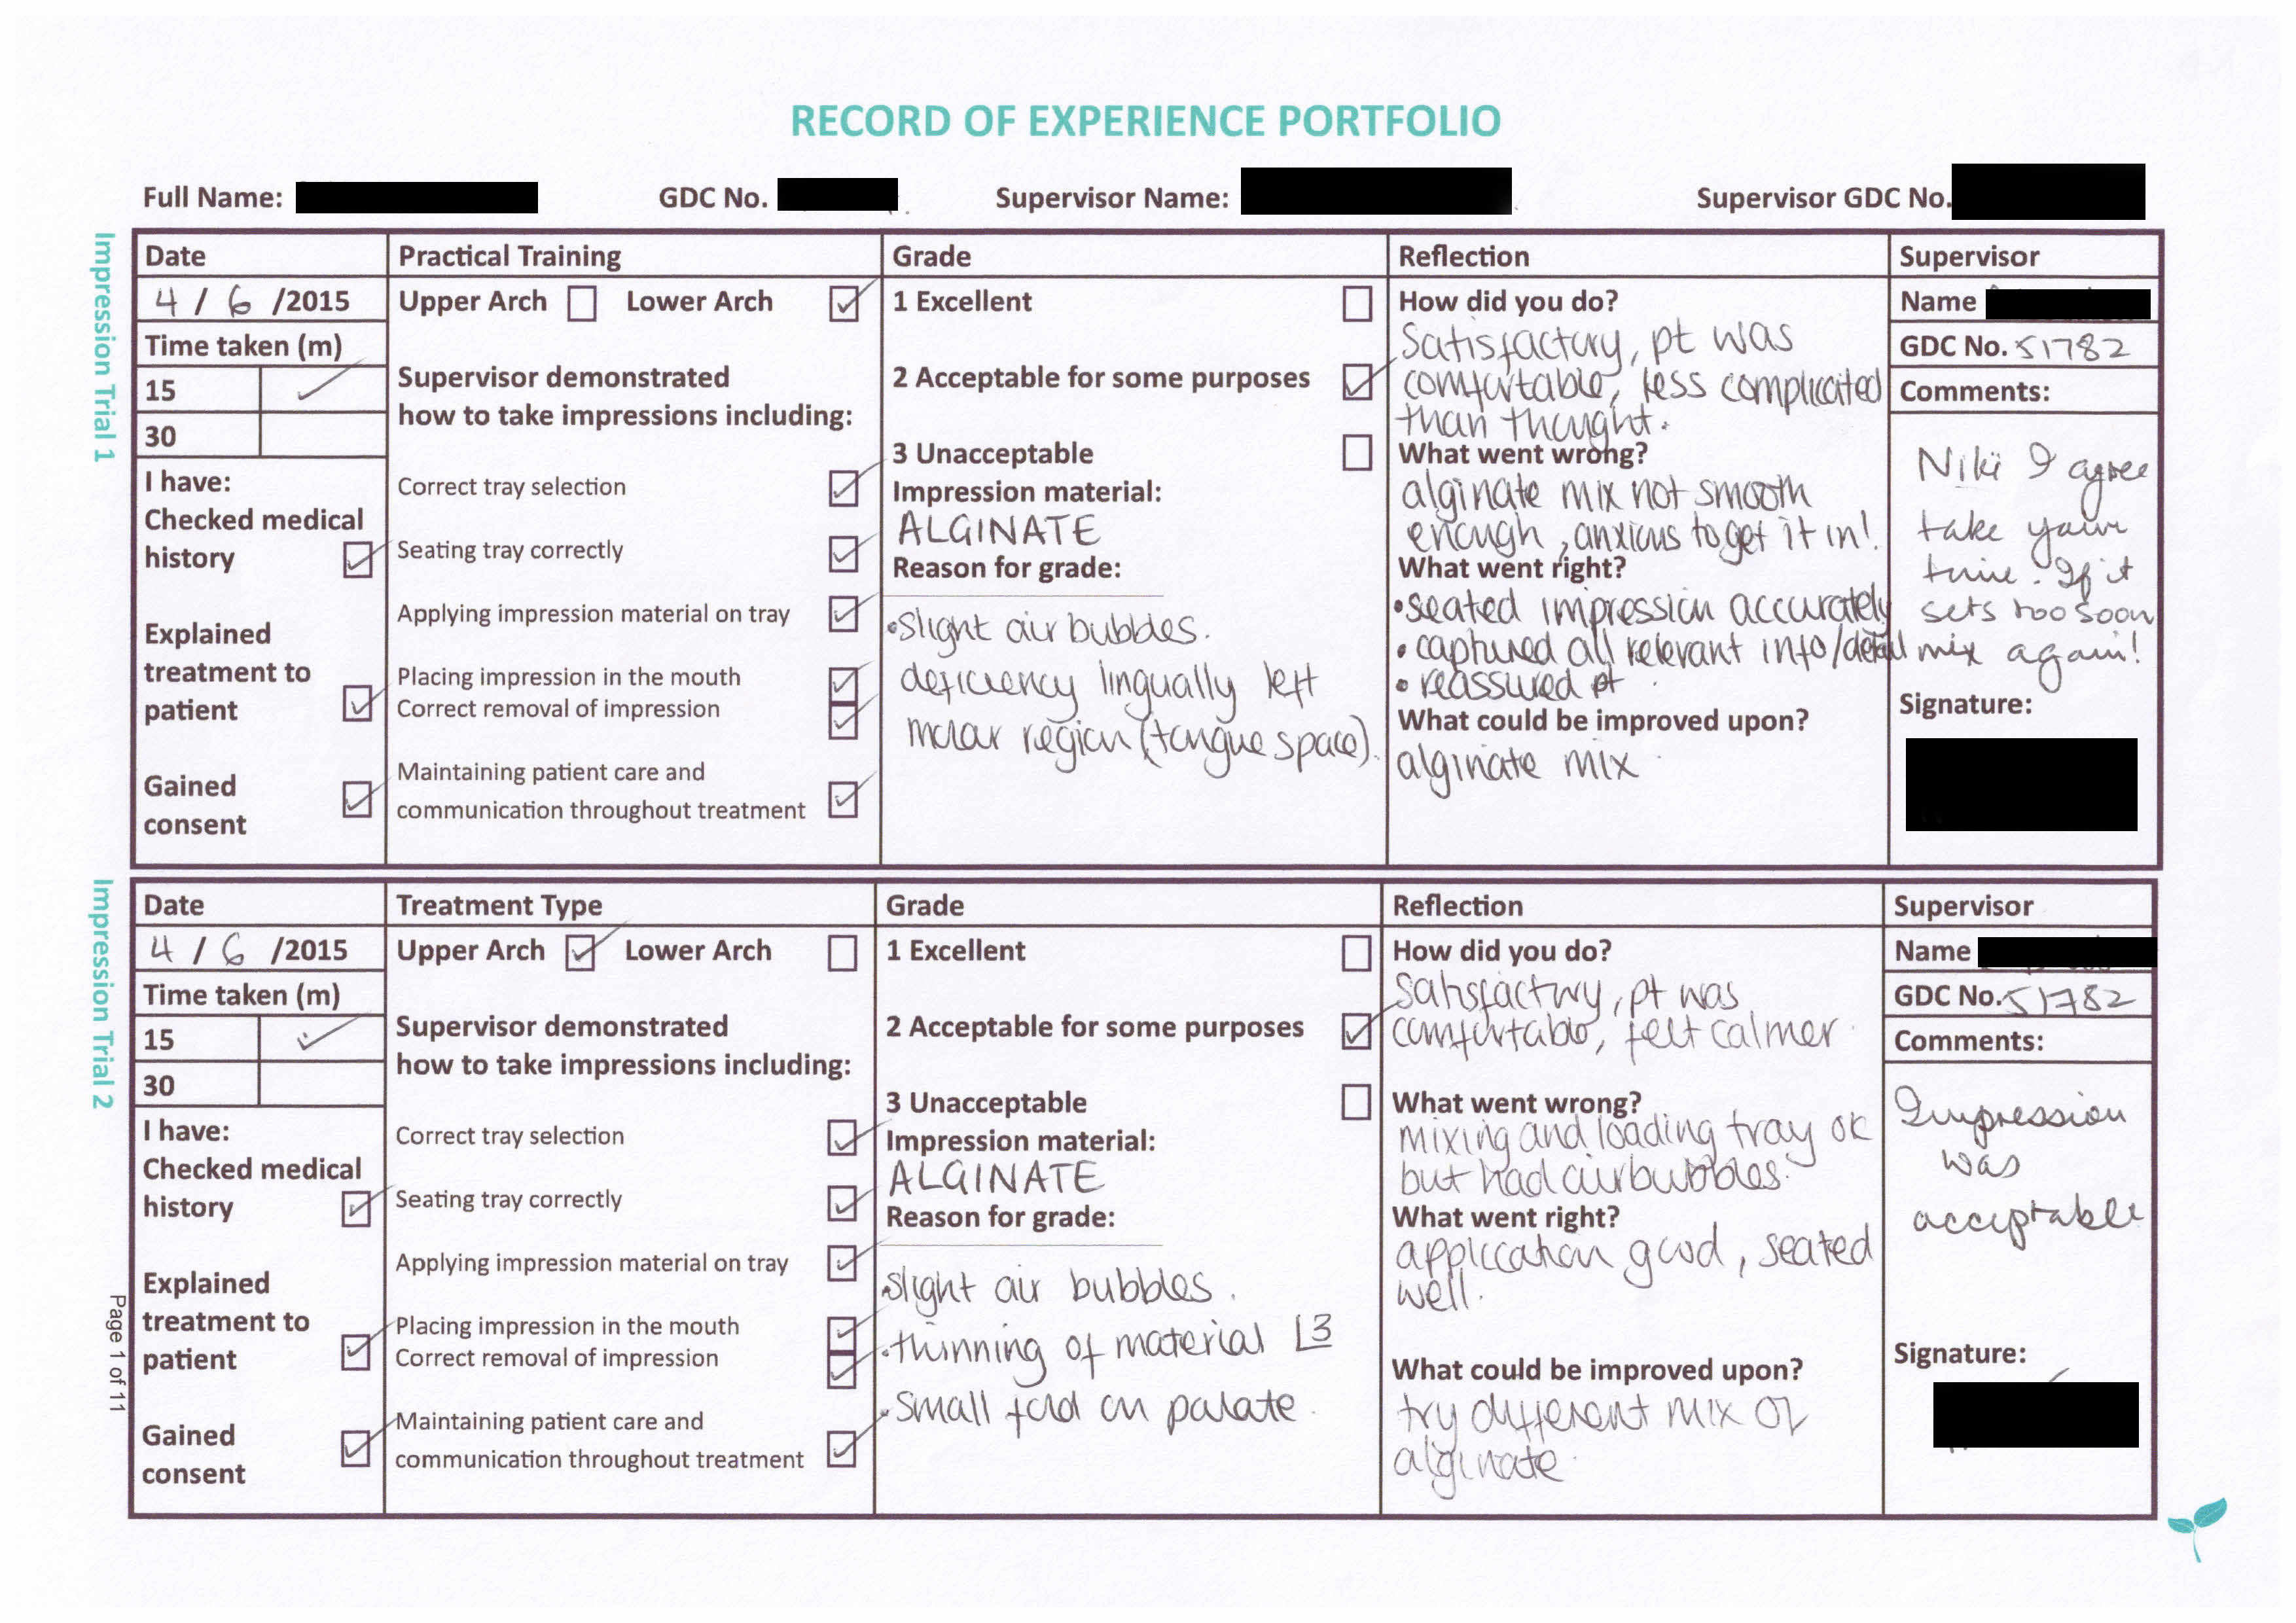 RECORD OF EXPERIENCE PORTFOLIO
Full Name: GDC No. Supervisor Name: Supervisor GDC No.
Impression Trial 1
Date
4 / 6 /2015
Time taken (m)
15 ✓
30
I have:
Checked medical
history
Explained
treatment to
patient
Gained
consent
Practical Training
Upper Arch Lower Arch
Supervisor demonstrated
how to take impressions including:
Correct tray selection
Seating tray correctly
Applying impression material on tray
Placing impression in the mouth
Correct removal of impression
Maintaining patient care and
communication throughout treatment
Grade
1 Excellent
2 Acceptable for some purposes
3 Unacceptable
Impression material:
ALGINATE
Reason for grade:
• Slight air bubbles.
deficiency lingually left
molar region (tongue space).
Reflection
How did you do?
Satisfactory, pt was
comfortable, less complicated
than thought.
What went wrong?
alginate mix not smooth
enough, anxious to get it in!
What went right?
• seated impression accurately
• captured all relevant info/detail
• reassured pt
What could be improved upon?
alginate mix
Supervisor
Name
GDC No. 51782
Comments:
Niki I agree
take your
time. If it
sets too soon
mix again!
Signature:
Impression Trial 2
Date
4 / 6 /2015
Time taken (m)
15 ✓
30
I have:
Checked medical
history
Explained
treatment to
patient
Gained
consent
Treatment Type
Upper Arch Lower Arch
Supervisor demonstrated
how to take impressions including:
Correct tray selection
Seating tray correctly
Applying impression material on tray
Placing impression in the mouth
Correct removal of impression
Maintaining patient care and
communication throughout treatment
Grade
1 Excellent
2 Acceptable for some purposes
3 Unacceptable
Impression material:
ALGINATE
Reason for grade:
• Slight air bubbles.
• thinning of material L3
• Small fold on palate.
Reflection
How did you do?
Satisfactory, pt was
comfortable, felt calmer.
What went wrong?
mixing and loading tray ok
but had air bubbles.
What went right?
application good, seated
well.
What could be improved upon?
try different mix of
alginate.
Supervisor
Name
GDC No. 51782
Comments:
Impression
was
acceptable
Signature:
Page 1 of 11